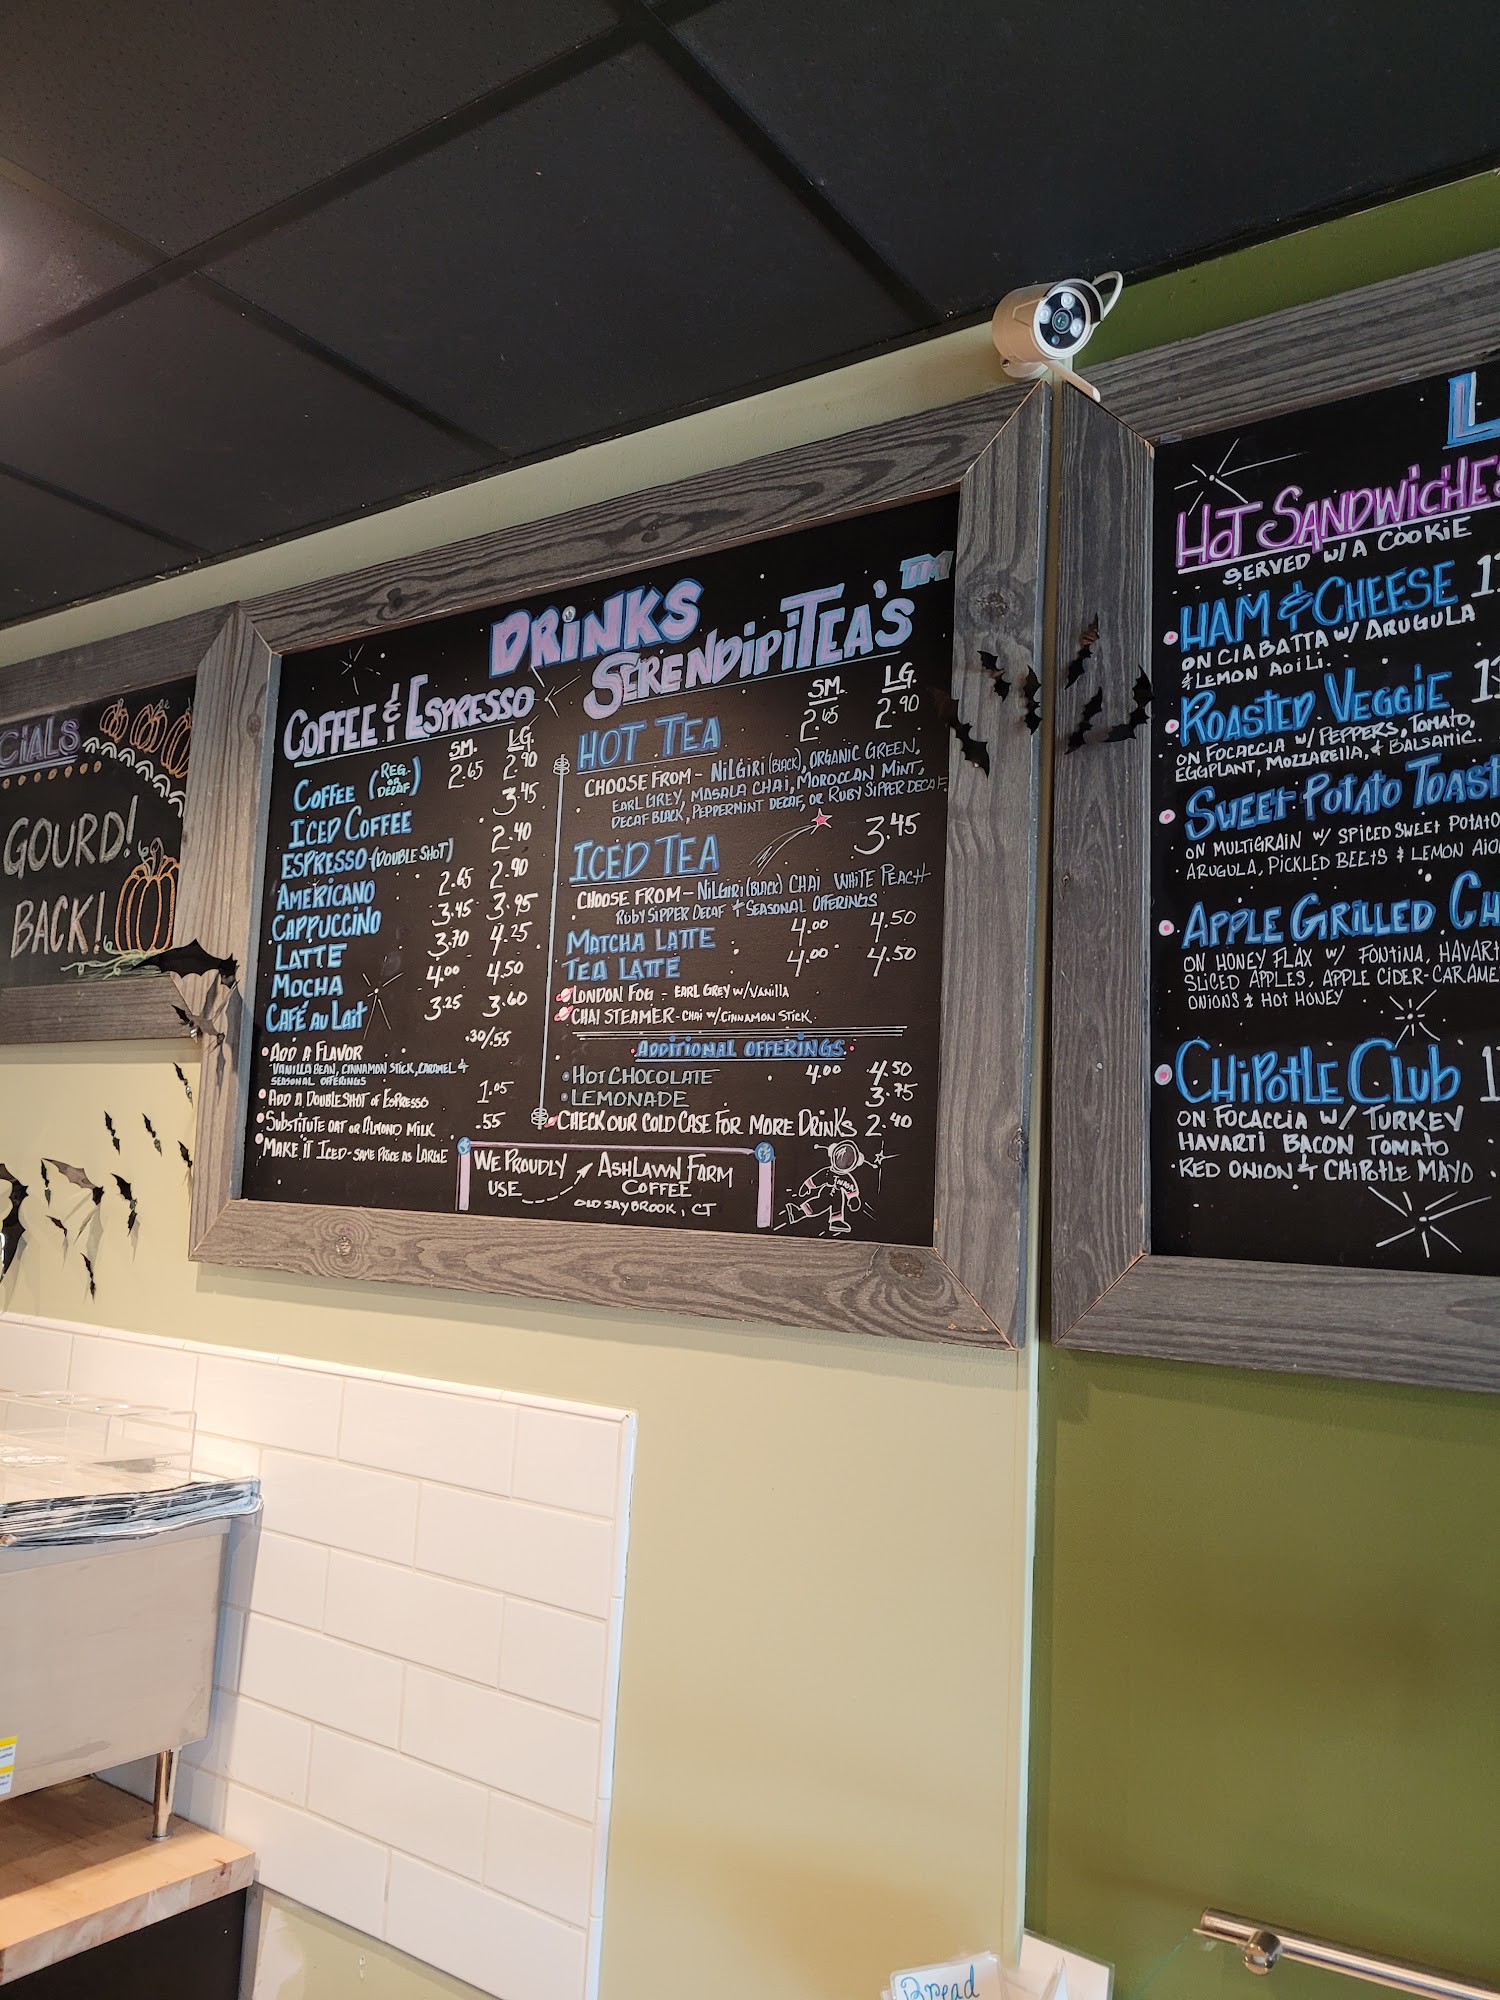 CIALS
GOURD!
BACK!
DRINKS
COFFEE & ESPRESSO
SM. LG.
COFFEE (REG. OR DECAF) 2.65 2.90
ICED COFFEE 3.45
ESPRESSO (DOUBLE SHOT) 2.40
AMERICANO 2.65 2.90
CAPPUCCINO 3.45 3.95
LATTE 3.70 4.25
MOCHA 4.00 4.50
CAFÉ AU LAIT 3.25 3.60
ADD A FLAVOR .30/.55
VANILLA BEAN, CINNAMON STICK, CARAMEL &
SEASONAL OFFERINGS
ADD A DOUBLE SHOT OF ESPRESSO 1.05
SUBSTITUTE OAT OR ALMOND MILK .55
MAKE IT ICED - SAME PRICE AS LARGE
SERENDIPITEA'S TM
SM. LG.
HOT TEA 2.65 2.90
CHOOSE FROM - NILGIRI (BLACK), ORGANIC GREEN,
EARL GREY, MASALA CHAI, MOROCCAN MINT,
DECAF BLACK, PEPPERMINT DECAF, OR RUBY SIPPER DECAF.
ICED TEA 3.45
CHOOSE FROM - NILGIRI (BLACK) CHAI WHITE PEACH
RUBY SIPPER DECAF & SEASONAL OFFERINGS
MATCHA LATTE 4.00 4.50
TEA LATTE 4.00 4.50
LONDON FOG - EARL GREY W/ VANILLA
CHAI STEAMER - CHAI W/ CINNAMON STICK
ADDITIONAL OFFERINGS
HOT CHOCOLATE 4.00 4.50
LEMONADE 3.75
CHECK OUR COLD CASE FOR MORE DRINKS 2.40
WE PROUDLY
USE
ASHLAWN FARM
COFFEE
OLD SAYBROOK, CT
L
HOT SANDWICHES
SERVED W/ A COOKIE
HAM & CHEESE
ON CIABATTA W/ ARUGULA
& LEMON AOILI.
ROASTED VEGGIE
ON FOCACCIA W/ PEPPERS, TOMATO,
EGGPLANT, MOZZARELLA, & BALSAMIC.
SWEET POTATO TOAST
ON MULTIGRAIN W/ SPICED SWEET POTATO
ARUGULA, PICKLED BEETS & LEMON AIO
APPLE GRILLED CH
ON HONEY FLAX W/ FONTINA, HAVART
SLICED APPLES, APPLE CIDER-CARAME
ONIONS & HOT HONEY
CHIPOTLE CLUB
ON FOCACCIA W/ TURKEY
HAVARTI BACON TOMATO
RED ONION & CHIPOTLE MAYO
Bread